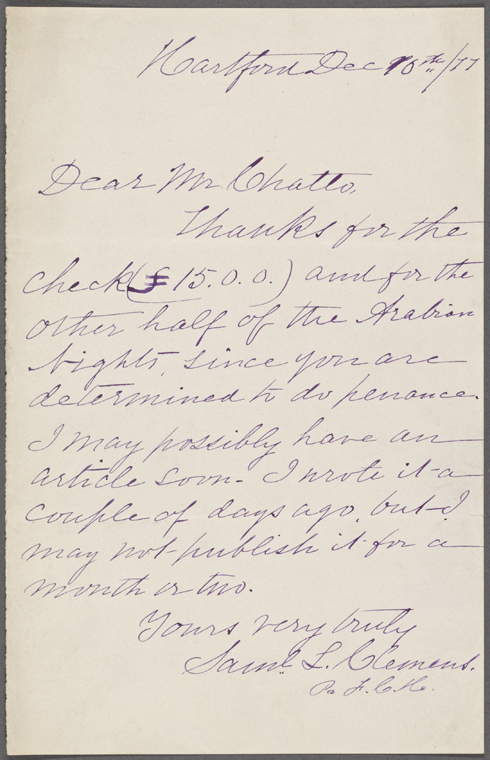 Hartford Dec 10th/77
Dear Mr Chatto,
Thanks for the
check (£15.0.0.) and for the
other half of the Arabian
Nights, since you are
determined to do penance.
I may possibly have an
article soon. I wrote it a
couple of days ago, but I
may not publish it for a
month or two.
Yours very truly
Saml. L. Clemens.
Pr F. C. H.